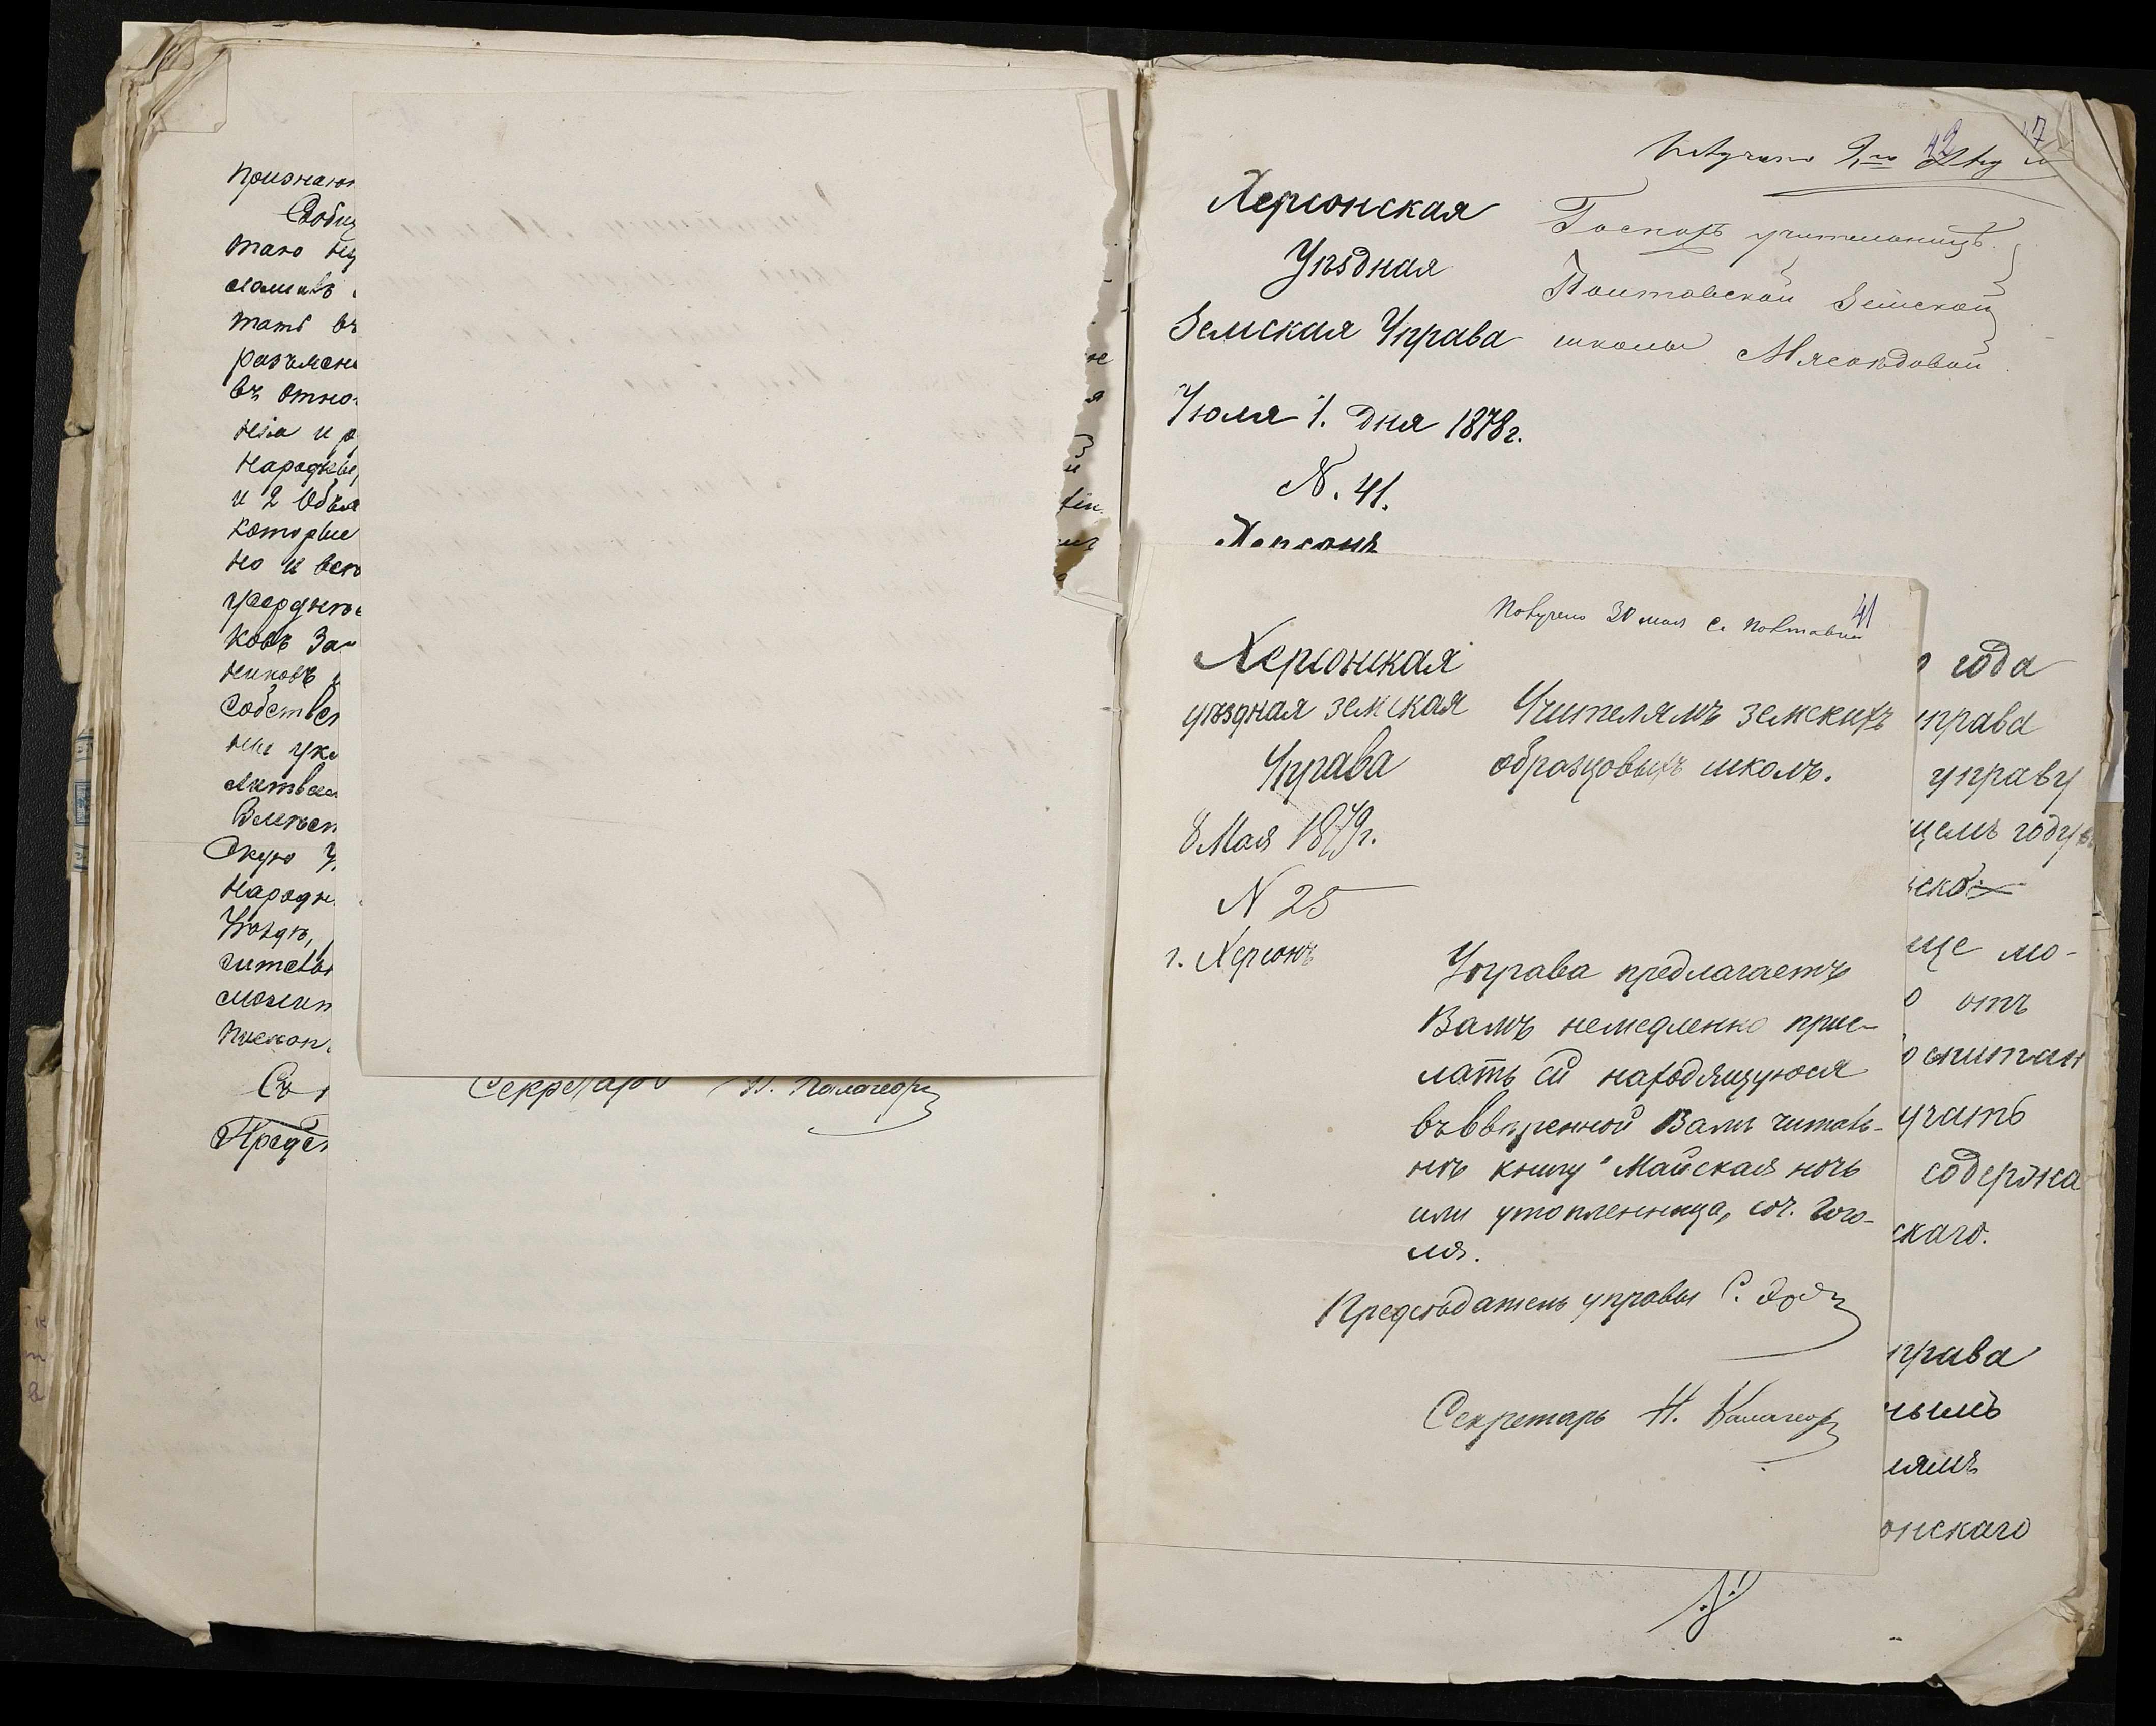 признаю
Сообщ
тано
тать въ
разъясне
въ отно
нія и р
народны
и 2 объя
которые
но и всп
усердны
ковъ За
никовъ
собствен
ны ука
Вмѣст
скую У
народн
Уѣздѣ,
читаль
Съ
Предсѣ
Секретарь Н. Калагеорг
42
Получено 9го Авг
Херсонская
Уѣздная
Земская Управа
Госпожѣ учительницѣ
Полтавской Земской
школы Мясоѣдовой
Іюля 1. дня 1878 г.
N. 41.
Херсонъ
41
Получено 30 мая С. Полтавки
Херсонская
уѣздная земская
Управа
8 Мая 1879 г.
N 25
г. Херсонъ
Учителямъ земскихъ
образцовыхъ школъ.
Управа предлагаетъ
Вамъ немедленно прис-
лать ей находящуюся
въ ввѣренной Вамъ читаль-
нѣ книгу "Майская ночь
или утопленница, соч. Гого-
ля.
Предсѣдатель управы С.
Секретарь Н. Калагеорг
года
управа
управу
щемъ году въ
ской
еще мо-
отъ
воспитан
учать
содержа
скаго.
управа
нымъ
лямъ
онскаго